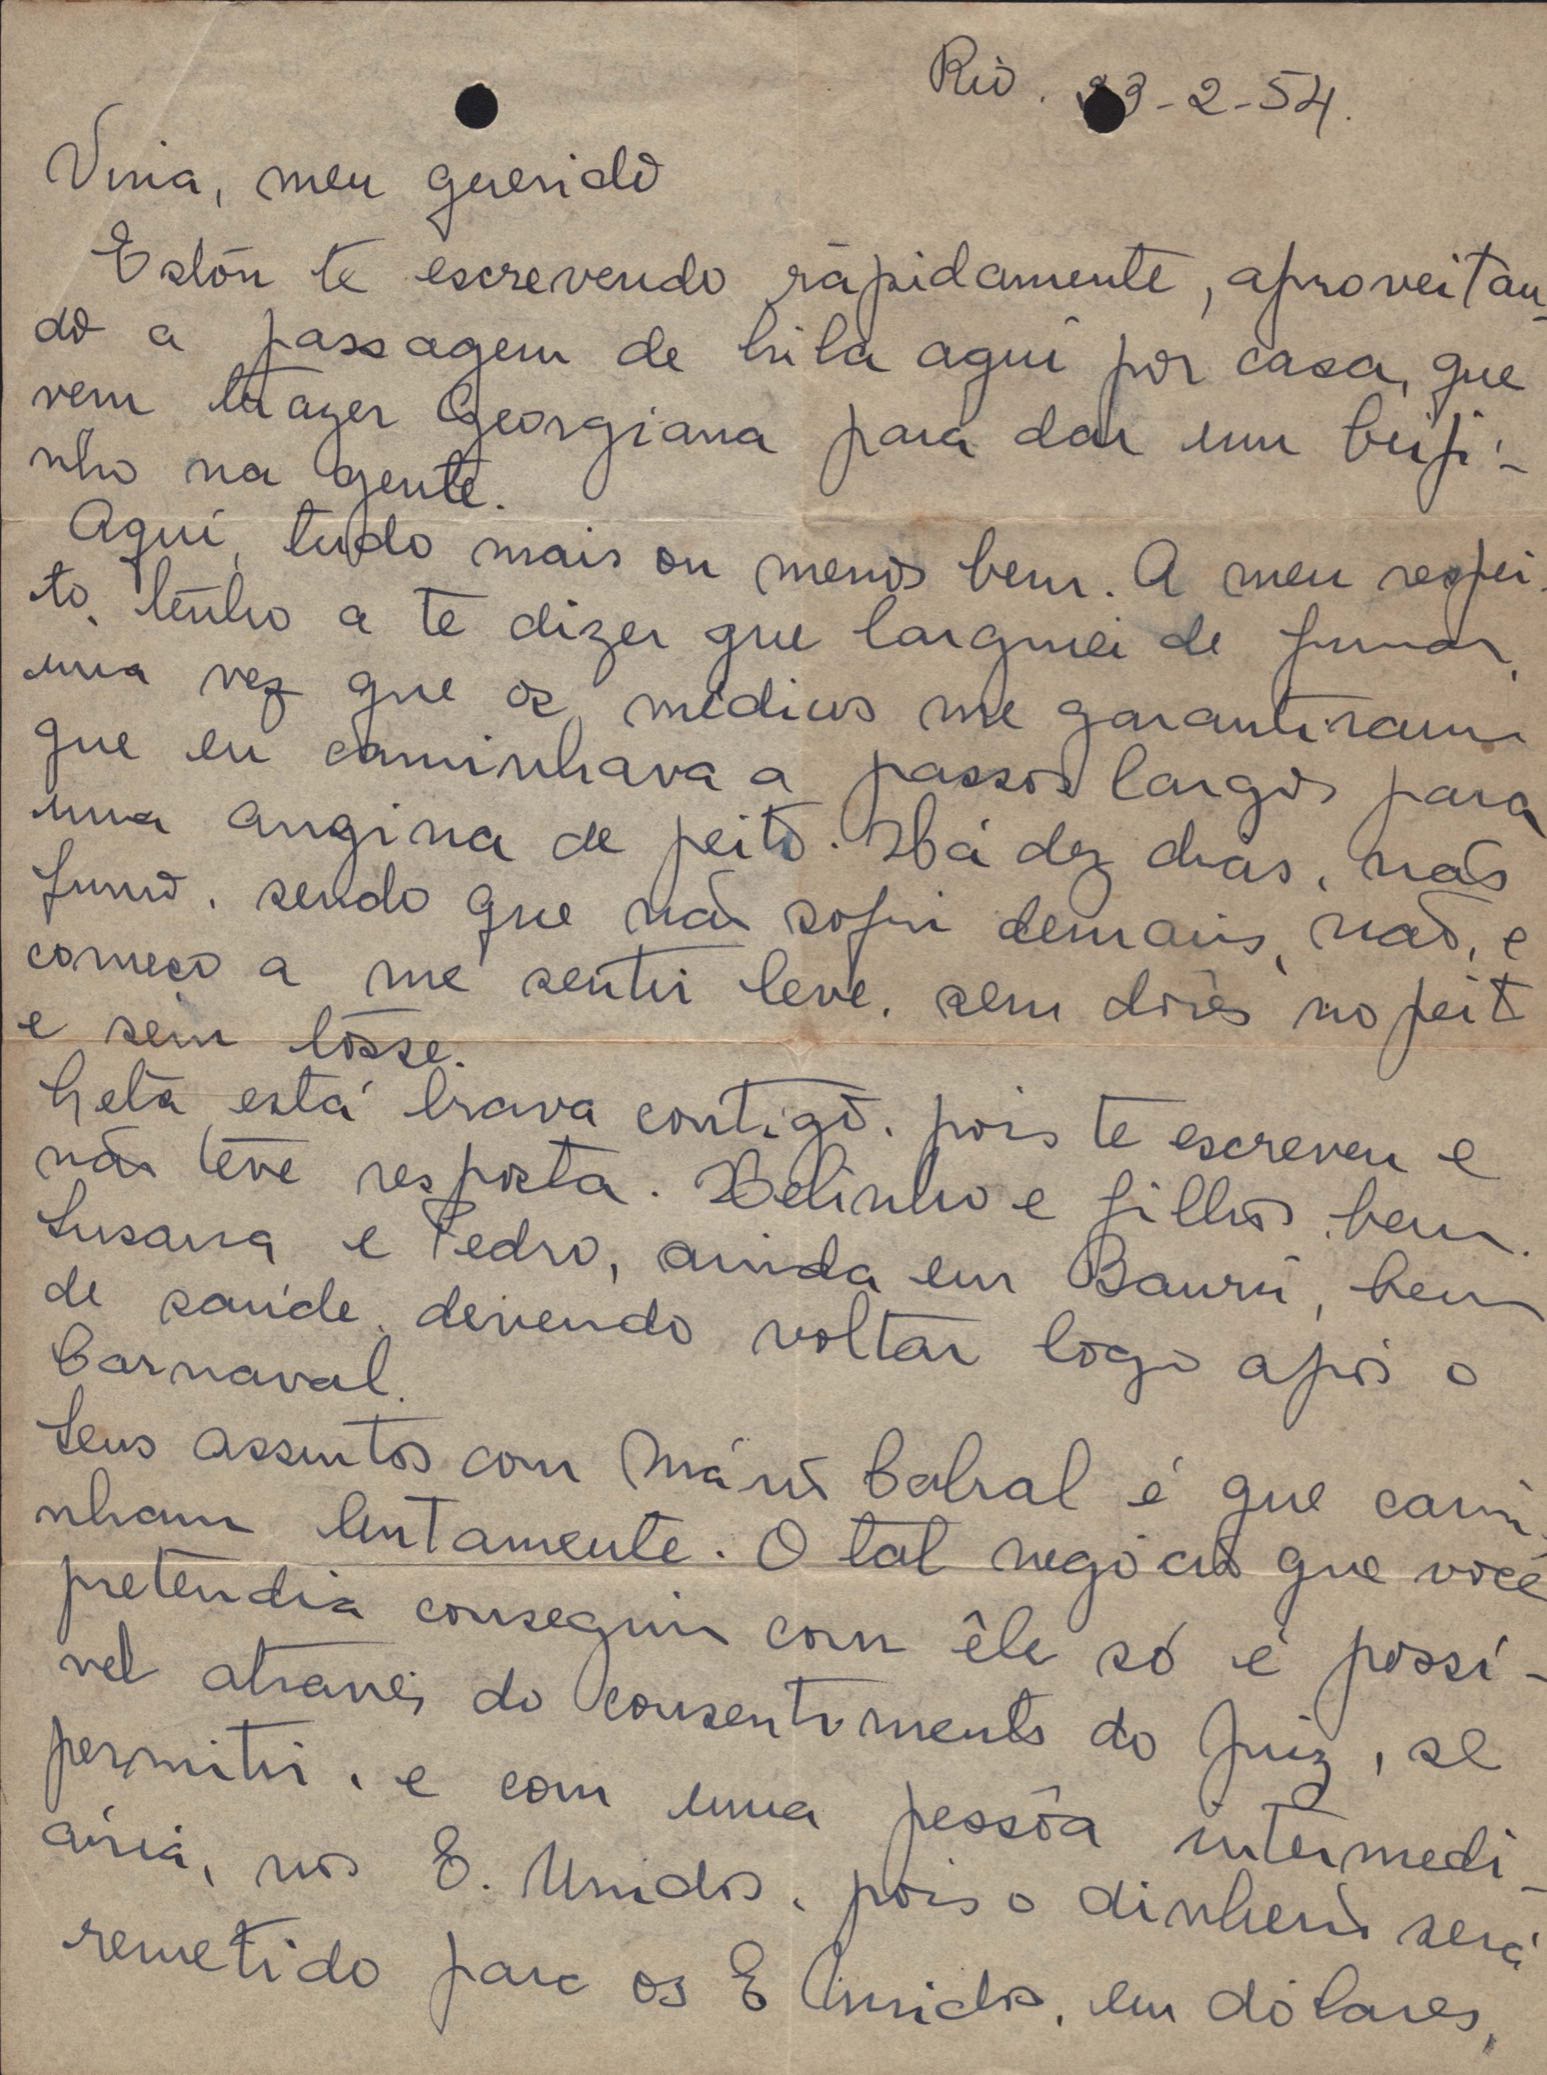 Rio. 23-2-54.
Vinia, meu querido
Estou te escrevendo ràpidamente, aproveitan-
do a passagem de Lila aqui por casa, que
vem trazer Georgiana para dar um beiji-
nho na gente.
Aqui, tudo mais ou menos bem. A meu respei-
to, tenho a te dizer que larguei de fumar,
uma vez que os médicos me garantiram
que eu caminhava a passos largos para
uma angina de peito. Há dez dias, não
fumo, sendo que não sofri demais, não, e
começo a me sentir leve, sem dôres no peito
e sem tosse.
Leta está brava contigo, pois te escreveu e
não teve resposta. Helinho e filhos, bem.
Susana e Pedro, ainda em Baurú, bem
de saúde, devendo voltar logo após o
Carnaval.
Seus assuntos com Mário Cabral é que cami-
nham lentamente. O tal negócio que você
pretendia conseguir com êle só é possí-
vel através do consentimento do Juiz, se
permitir, e com uma pessôa intermedi-
ária, nos E. Unidos, pois o dinheiro será
remetido para os E Unidos, em dólares,